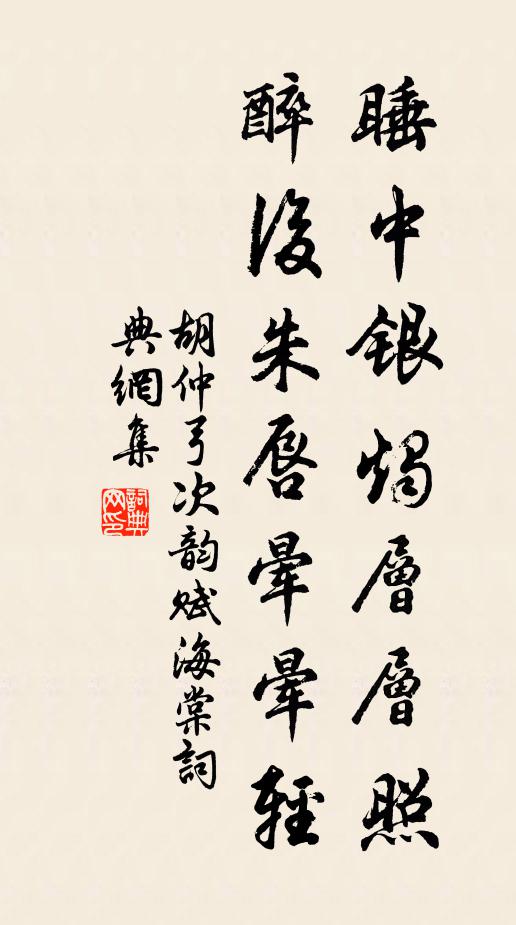 睡中銀燭層層照
醉後朱唇暈暈輕
胡仲弓次韵賦海棠詞
典網集
詞典網印